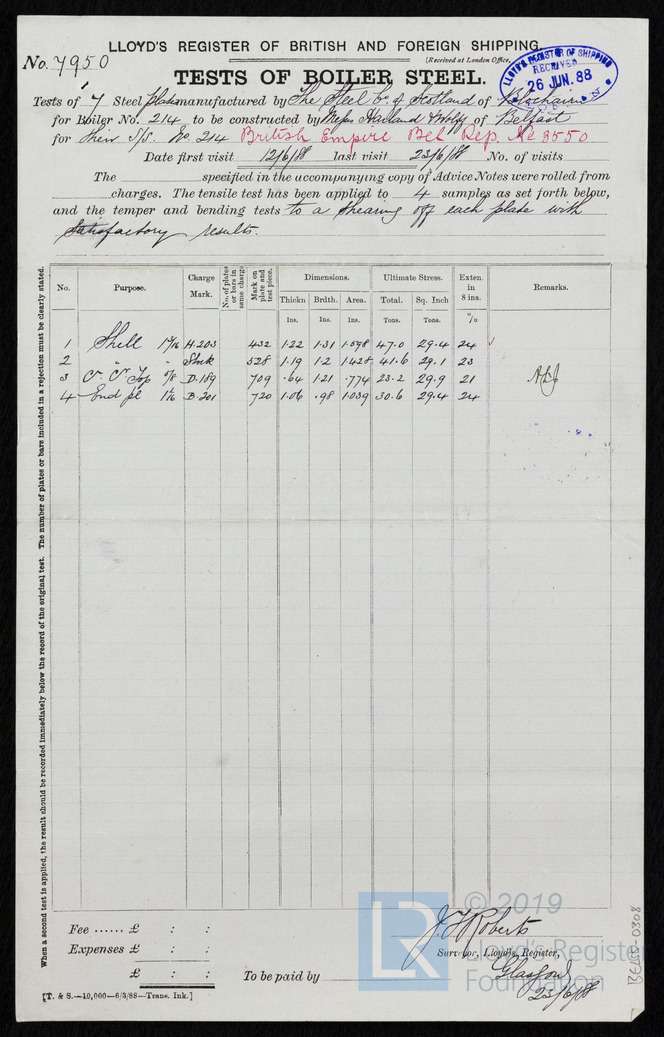 LLOYD'S REGISTER OF BRITISH AND FOREIGN SHIPPING.
No. 7950
(Received at London Office,
LLOYD'S REGISTER OF SHIPPING
RECEIVED
26 JUN. 88
TESTS OF BOILER STEEL.
Tests of 7 Steel plates manufactured by The Steel Co. of Scotland of Blochairn
for Boiler No. 214 to be constructed by Messrs Harland & Wolff of Belfast
for their S/S. No. 214 British Empire Bel Rep. No 8550
Date first visit 12/6/88 last visit 23/6/88 No. of visits
The specified in the accompanying copy of Advice Notes were rolled from
charges. The tensile test has been applied to 4 samples as set forth below,
and the temper and bending tests to a shearing off each plate with
satisfactory results.
No. Purpose. Charge Mark. No. of plates or bars in same charge. Mark on plate and test piece. Dimensions. Ultimate Stress. Exten. in 8 ins. Remarks.
Thickn Brdth. Area. Total. Sq. Inch
Ins. Ins. Ins. Tons. Tons. %
1 Shell 1 3/16 H.203 432 1.22 1.31 1.598 47.0 29.4 24
2 " " Stock 528 1.19 1.2 1.428 41.6 29.1 23
3 Top 5/8 D.189 709 .64 1.21 .774 23.2 29.9 21
4 End pl 1 1/16 B.201 720 1.06 .98 1.039 30.6 29.4 24
When a second test is applied, the result should be recorded immediately below the record of the original test. The number of plates or bars included in a rejection must be clearly stated.
Fee ...... £ : :
Expenses £ : :
£ : :
To be paid by
J. F. Roberts
Surveyor, Lloyd's Register,
Glasgow
23/6/88
[T. & S.—10,000—6/3/88—Trans. Ink.]
LR
© 2019
Lloyd's Register
Foundation
BEL80-0308